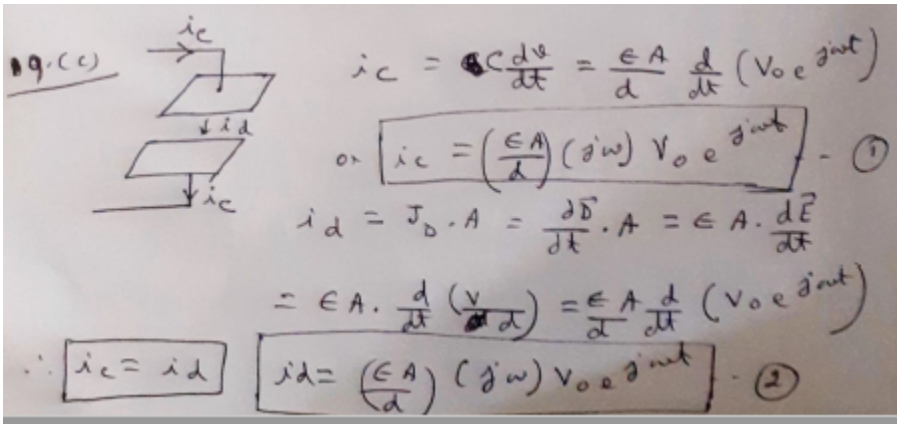 19.(c)
i_c
i_d
i_c
i_c = C dv/dt = ∈A/d d/dt (V₀ e^jωt)
or i_c = (∈A/d) (jω) V₀ e^jωt - ①
i_d = J_D . A = ∂D⃗/∂t . A = ∈ A . dE⃗/dt
= ∈ A . d/dt (V/d) = ∈A/d d/dt (V₀ e^jωt)
∴ i_c = i_d i_d = (∈A/d) (jω) V₀ e^jωt - ②